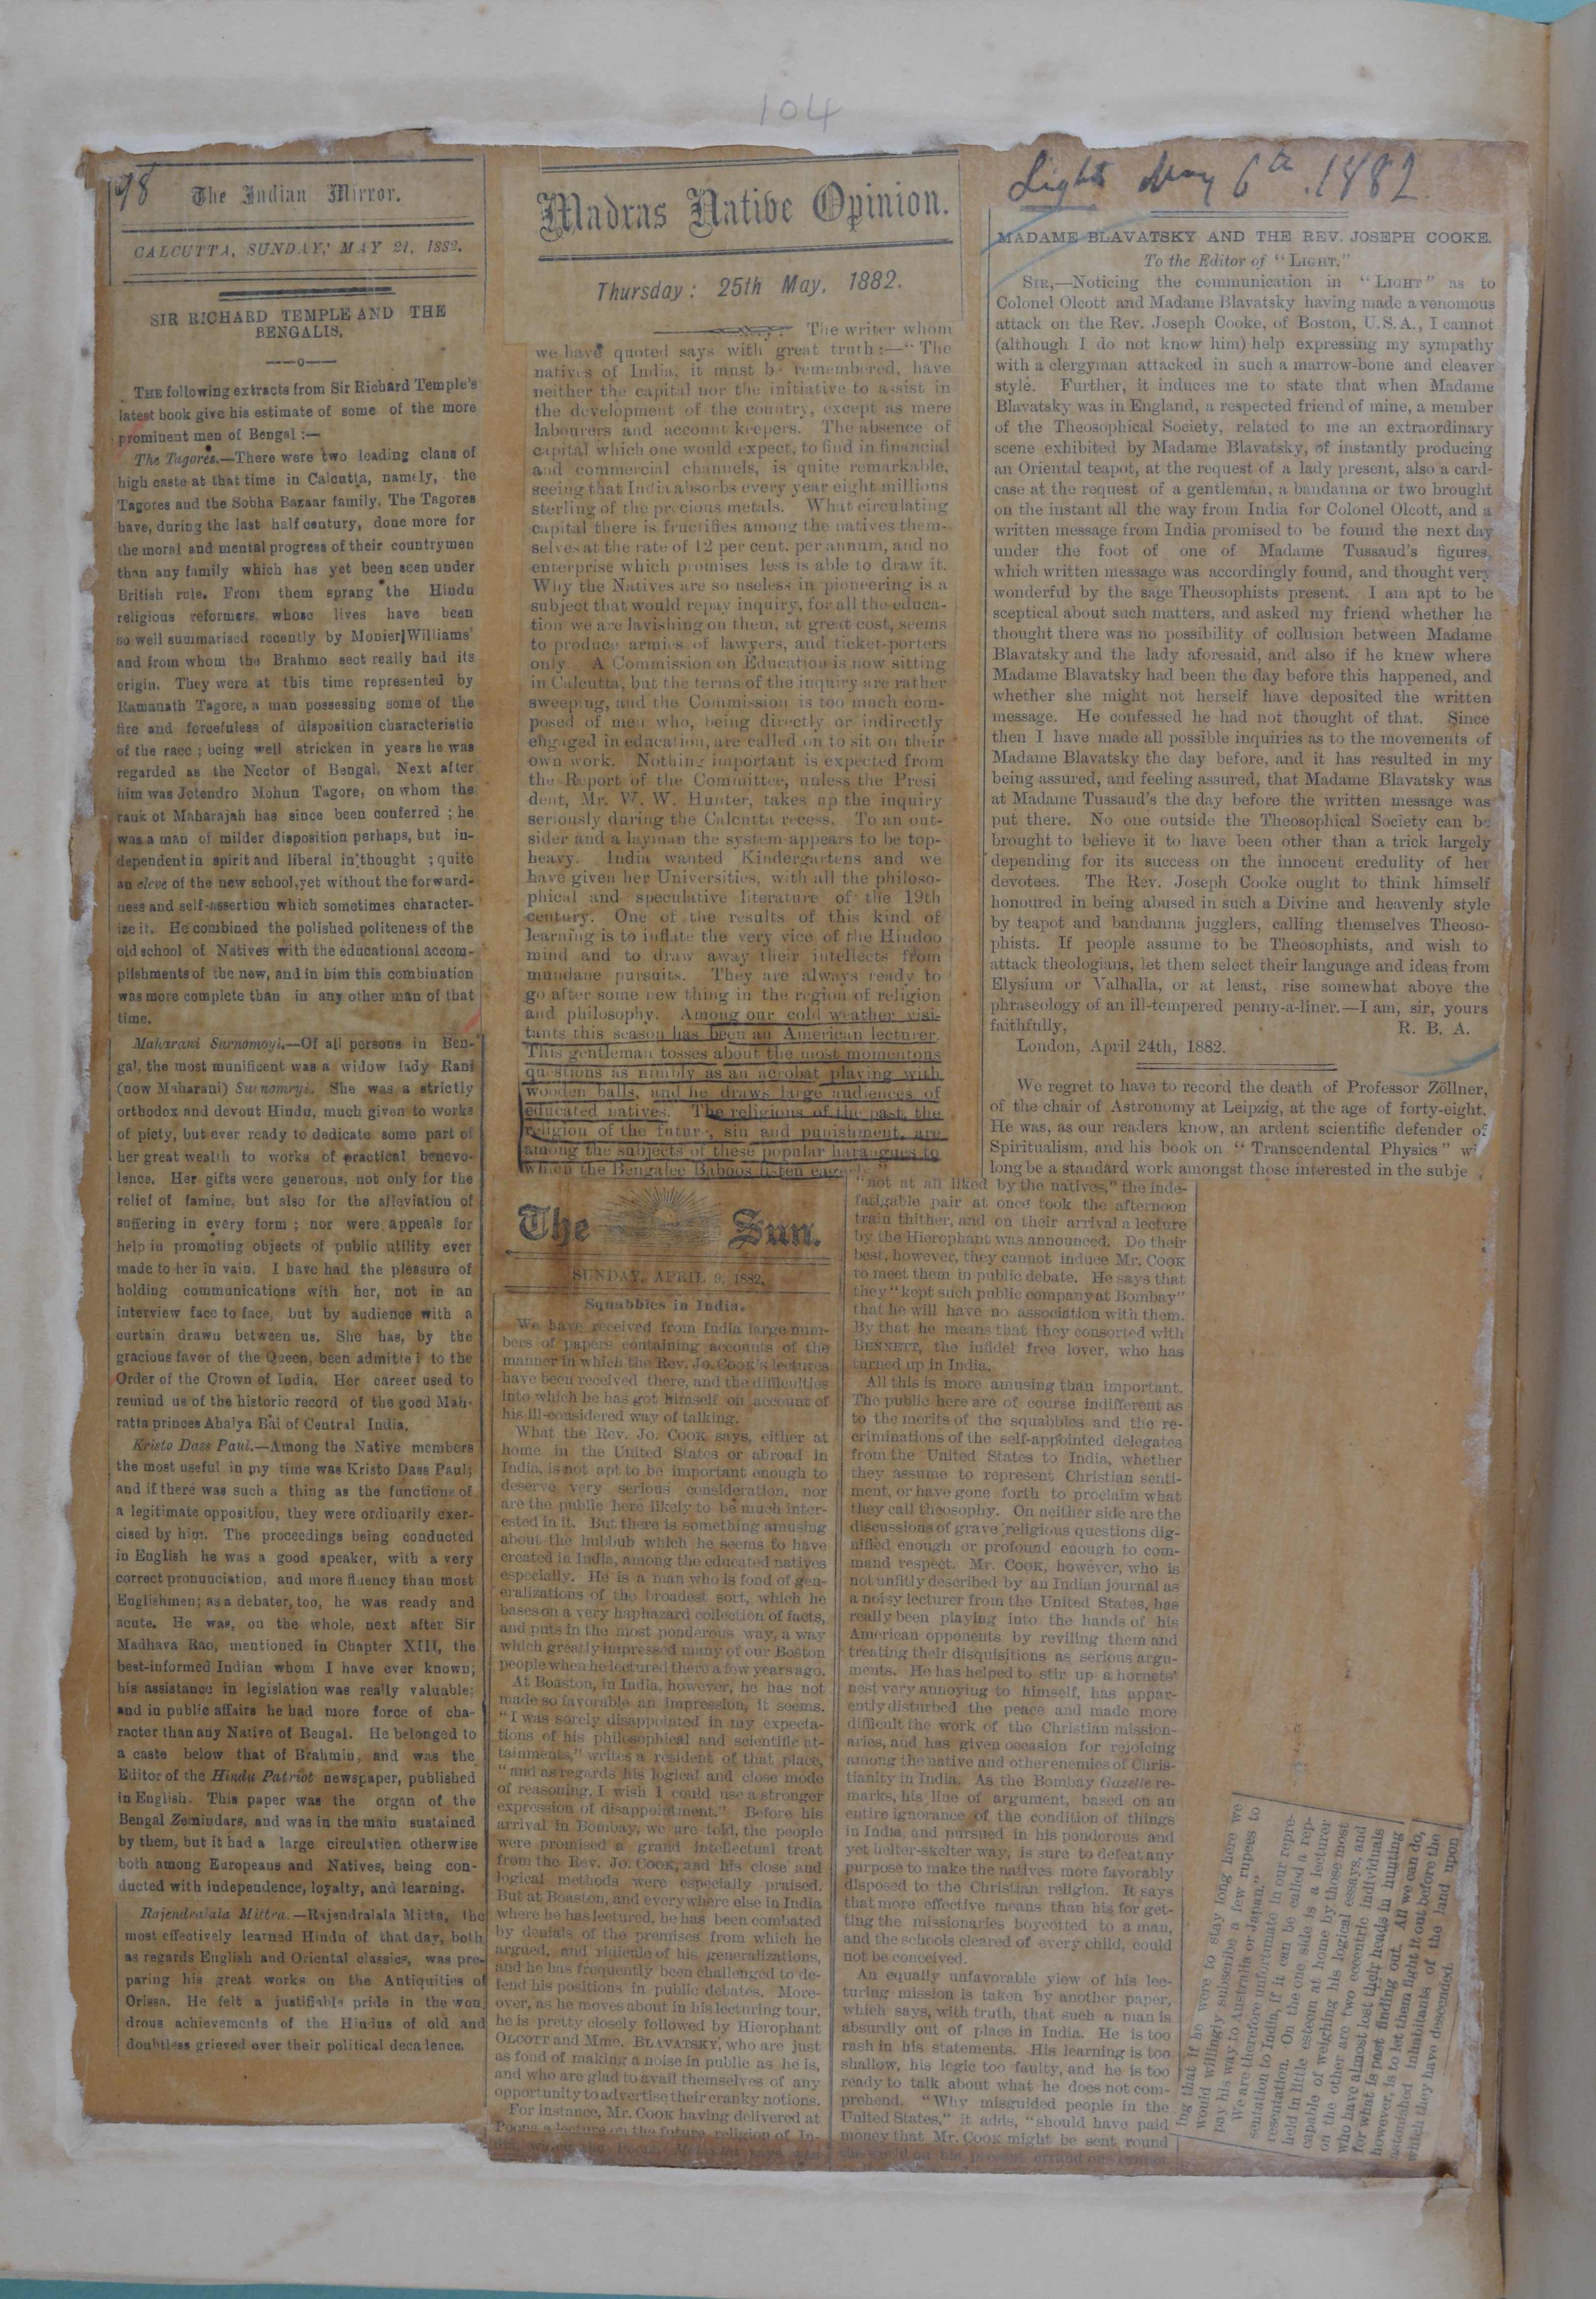 104
98
The Indian Mirror.
CALCUTTA, SUNDAY, MAY 21, 1882.
SIR RICHARD TEMPLE AND THE
BENGALIS.
THE following extracts from Sir Richard Temple's
latest book give his estimate of some of the more
prominent men of Bengal :—
The Tagores.—There were two leading clans of
high caste at that time in Calcutta, namely, the
Tagores and the Sobha Bazaar family. The Tagores
have, during the last half century, done more for
the moral and mental progress of their countrymen
than any family which has yet been seen under
British rule. From them sprang the Hindu
religious reformers whose lives have been
so well summarised recently by Monier Williams'
and from whom the Brahmo sect really had its
origin. They were at this time represented by
Ramanath Tagore, a man possessing some of the
fire and forcefuless of disposition characteristic
of the race ; being well stricken in years he was
regarded as the Nector of Bengal. Next after
him was Jotendro Mohun Tagore, on whom the
rank ot Maharajah has since been conferred ; he
was a man of milder disposition perhaps, but in-
dependent in spirit and liberal in thought ; quite
an eleve of the new school, yet without the forward-
ness and self-assertion which sometimes character-
ize it. He combined the polished politeness of the
old school of Natives with the educational accom-
plishments of the new, and in him this combination
was more complete than in any other man of that
time.
Maharani Surnomoyi.—Of all persons in Ben-
gal, the most munificent was a widow lady Rani
(now Maharani) Surnomryi. She was a strictly
orthodox and devout Hindu, much given to works
of piety, but ever ready to dedicate some part of
her great wealth to works of practical benevo-
lence. Her gifts were generous, not only for the
relief of famine, but also for the alleviation of
suffering in every form ; nor were appeals for
help in promoting objects of public utility ever
made to her in vain. I have had the pleasure of
holding communications with her, not in an
interview face to face, but by audience with a
curtain drawn between us. She has, by the
gracious favor of the Queen, been admitted to the
Order of the Crown of India. Her career used to
remind us of the historic record of the good Mah-
ratta princes Ahalya Bai of Central India.
Kristo Dass Paul.—Among the Native members
the most useful in my time was Kristo Dass Paul;
and if there was such a thing as the functions of
a legitimate opposition, they were ordinarily exer-
cised by him. The proceedings being conducted
in English he was a good speaker, with a very
correct pronunciation, and more fluency than most
Englishmen; as a debater, too, he was ready and
acute. He was, on the whole, next after Sir
Madhava Rao, mentioned in Chapter XIII, the
best-informed Indian whom I have ever known;
his assistance in legislation was really valuable;
and in public affairs he had more force of cha-
racter than any Native of Bengal. He belonged to
a caste below that of Brahmin, and was the
Editor of the Hindu Patriot newspaper, published
in English. This paper was the organ of the
Bengal Zemindars, and was in the main sustained
by them, but it had a large circulation otherwise
both among Europeans and Natives, being con-
ducted with independence, loyalty, and learning.
Rajendralala Mittra.—Rajendralala Mitta, the
most effectively learned Hindu of that day, both
as regards English and Oriental classics, was pre-
paring his great works on the Antiquities of
Orissa. He felt a justifiable pride in the won
drous achievements of the Hindus of old and
doubtless grieved over their political decadence.
Madras Native Opinion.
Thursday: 25th May, 1882.
The writer whom
we have quoted says with great truth:—"The
natives of India, it must be remembered, have
neither the capital nor the initiative to assist in
the development of the country, except as mere
labourers and account keepers. The absence of
capital which one would expect, to find in financial
and commercial channels, is quite remarkable,
seeing that India absorbs every year eight millions
sterling of the precious metals. What circulating
capital there is fructifies among the natives them-
selves at the rate of 12 per cent. per annum, and no
enterprise which promises less is able to draw it.
Why the Natives are so useless in pioneering is a
subject that would repay inquiry, for all the educa-
tion we are lavishing on them, at great cost, seems
to produce armies of lawyers, and ticket-porters
only. A Commission on Education is now sitting
in Calcutta, but the terms of the inquiry are rather
sweeping, and the Commission is too much com-
posed of men who, being directly or indirectly
engaged in education, are called on to sit on their
own work. Nothing important is expected from
the Report of the Committee, unless the Presi
dent, Mr. W. W. Hunter, takes up the inquiry
seriously during the Calcutta recess. To an out-
sider and a layman the system appears to be top-
heavy. India wanted Kindergartens and we
have given her Universities, with all the philoso-
phical and speculative literature of the 19th
century. One of the results of this kind of
learning is to inflate the very vice of the Hindoo
mind and to draw away their intellects from
mundane pursuits. They are always ready to
go after some new thing in the region of religion
and philosophy. Among our cold weather visi-
tants this season has been an American lecturer.
This gentleman tosses about the most momentous
questions as nimbly as an acrobat playing with
wooden balls, and he draws large audiences of
educated natives. The religious of the past, the
religion of the future, sin and punishment, are
among the subjects of these popular harangues to
which the Bengalee Baboos listen eagerly."
The Sun.
SUNDAY, APRIL 9, 1882.
Squabbles in India.
We have received from India large num-
bers of papers containing accounts of the
manner in which the Rev. Jo. COOK's lectures
have been received there, and the difficulties
into which he has got himself on account of
his ill-considered way of talking.
What the Rev. Jo. COOK says, either at
home in the United States or abroad in
India, is not apt to be important enough to
deserve very serious consideration, nor
are the public here likely to be much inter-
ested in it. But there is something amusing
about the hubbub which he seems to have
created in India, among the educated natives
especially. He is a man who is fond of gen-
eralizations of the broadest sort, which he
bases on a very haphazard collection of facts,
and puts in the most ponderous way, a way
which greatly impressed many of our Boston
people when he lectured there a few years ago.
At Boaston, in India, however, he has not
made so favorable an impression, it seems.
"I was sorely disappointed in my expecta-
tions of his philosophical and scientific at-
tainments," writes a resident of that place,
"and as regards his logical and close mode
of reasoning, I wish I could use a stronger
expression of disappointment." Before his
arrival in Bombay, we are told, the people
were promised a grand intellectual treat
from the Rev. Jo. COOK, and his close and
logical methods were especially praised.
But at Boaston, and everywhere else in India
where he has lectured, he has been combated
by denials of the premises from which he
argued, and ridicule of his generalizations,
and he has frequently been challenged to de-
fend his positions in public debates. More-
over, as he moves about in his lecturing tour,
he is pretty closely followed by Hierophant
OLCOTT and Mme. BLAVATSKY, who are just
as fond of making a noise in public as he is,
and who are glad to avail themselves of any
opportunity to advertise their cranky notions.
For instance, Mr. COOK having delivered at
Poona a lecture on the future religion of In-
"not at all liked by the natives," the inde-
fatigable pair at once took the afternoon
train thither, and on their arrival a lecture
by the Hierophant was announced. Do their
best, however, they cannot induce Mr. COOK
to meet them in public debate. He says that
they "kept such public company at Bombay"
that he will have no association with them.
By that he means that they consorted with
BENNETT, the infidel free lover, who has
turned up in India.
All this is more amusing than important.
The public here are of course indifferent as
to the merits of the squabbles and the re-
criminations of the self-appointed delegates
from the United States to India, whether
they assume to represent Christian senti-
ment, or have gone forth to proclaim what
they call theosophy. On neither side are the
discussions of grave religious questions dig-
nified enough or profound enough to com-
mand respect. Mr. COOK, however, who is
not unfitly described by an Indian journal as
a noisy lecturer from the United States, has
really been playing into the hands of his
American opponents by reviling them and
treating their disquisitions as serious argu-
ments. He has helped to stir up a hornets'
nest very annoying to himself, has appar-
ently disturbed the peace and made more
difficult the work of the Christian mission-
aries, and has given occasion for rejoicing
among the native and other enemies of Chris-
tianity in India. As the Bombay Gazette re-
marks, his line of argument, based on an
entire ignorance of the condition of things
in India, and pursued in his ponderous and
yet helter-skelter way, is sure to defeat any
purpose to make the natives more favorably
disposed to the Christian religion. It says
that more effective means than his for get-
ting the missionaries boycotted to a man,
and the schools cleared of every child, could
not be conceived.
An equally unfavorable view of his lec-
turing mission is taken by another paper,
which says, with truth, that such a man is
absurdly out of place in India. He is too
rash in his statements. His learning is too
shallow, his logic too faulty, and he is too
ready to talk about what he does not com-
prehend. "Why misguided people in the
United States," it adds, "should have paid
money that Mr. COOK might be sent round
the world on his present errand one cannot
ing that if he were to stay long here we
would willingly subscribe a few rupees to
pay his way to Australia or Japan."
We are therefore unfortunate in our repre-
sentation to India, if it can be called a rep-
resentation. On the one side is a lecturer
held in little esteem at home by those most
capable of weighing his logical essays, and
on the other are two eccentric individuals
who have almost lost their heads in hunting
for what is past finding out. All we can do,
however, is to let them fight it out before the
astonished inhabitants of the land upon
which they have descended.
Light May 6th. 1882.
MADAME BLAVATSKY AND THE REV. JOSEPH COOKE.
To the Editor of "LIGHT."
SIR,—Noticing the communication in "LIGHT" as to
Colonel Olcott and Madame Blavatsky having made a venomous
attack on the Rev. Joseph Cooke, of Boston, U.S.A., I cannot
(although I do not know him) help expressing my sympathy
with a clergyman attacked in such a marrow-bone and cleaver
style. Further, it induces me to state that when Madame
Blavatsky was in England, a respected friend of mine, a member
of the Theosophical Society, related to me an extraordinary
scene exhibited by Madame Blavatsky, of instantly producing
an Oriental teapot, at the request of a lady present, also a card-
case at the request of a gentleman, a bandanna or two brought
on the instant all the way from India for Colonel Olcott, and a
written message from India promised to be found the next day
under the foot of one of Madame Tussaud's figures,
which written message was accordingly found, and thought very
wonderful by the sage Theosophists present. I am apt to be
sceptical about such matters, and asked my friend whether he
thought there was no possibility of collusion between Madame
Blavatsky and the lady aforesaid, and also if he knew where
Madame Blavatsky had been the day before this happened, and
whether she might not herself have deposited the written
message. He confessed he had not thought of that. Since
then I have made all possible inquiries as to the movements of
Madame Blavatsky the day before, and it has resulted in my
being assured, and feeling assured, that Madame Blavatsky was
at Madame Tussaud's the day before the written message was
put there. No one outside the Theosophical Society can be
brought to believe it to have been other than a trick largely
depending for its success on the innocent credulity of her
devotees. The Rev. Joseph Cooke ought to think himself
honoured in being abused in such a Divine and heavenly style
by teapot and bandanna jugglers, calling themselves Theoso-
phists. If people assume to be Theosophists, and wish to
attack theologians, let them select their language and ideas from
Elysium or Valhalla, or at least, rise somewhat above the
phraseology of an ill-tempered penny-a-liner.—I am, sir, yours
faithfully, R. B. A.
London, April 24th, 1882.
We regret to have to record the death of Professor Zöllner,
of the chair of Astronomy at Leipzig, at the age of forty-eight.
He was, as our readers know, an ardent scientific defender of
Spiritualism, and his book on "Transcendental Physics" wi
long be a standard work amongst those interested in the subje